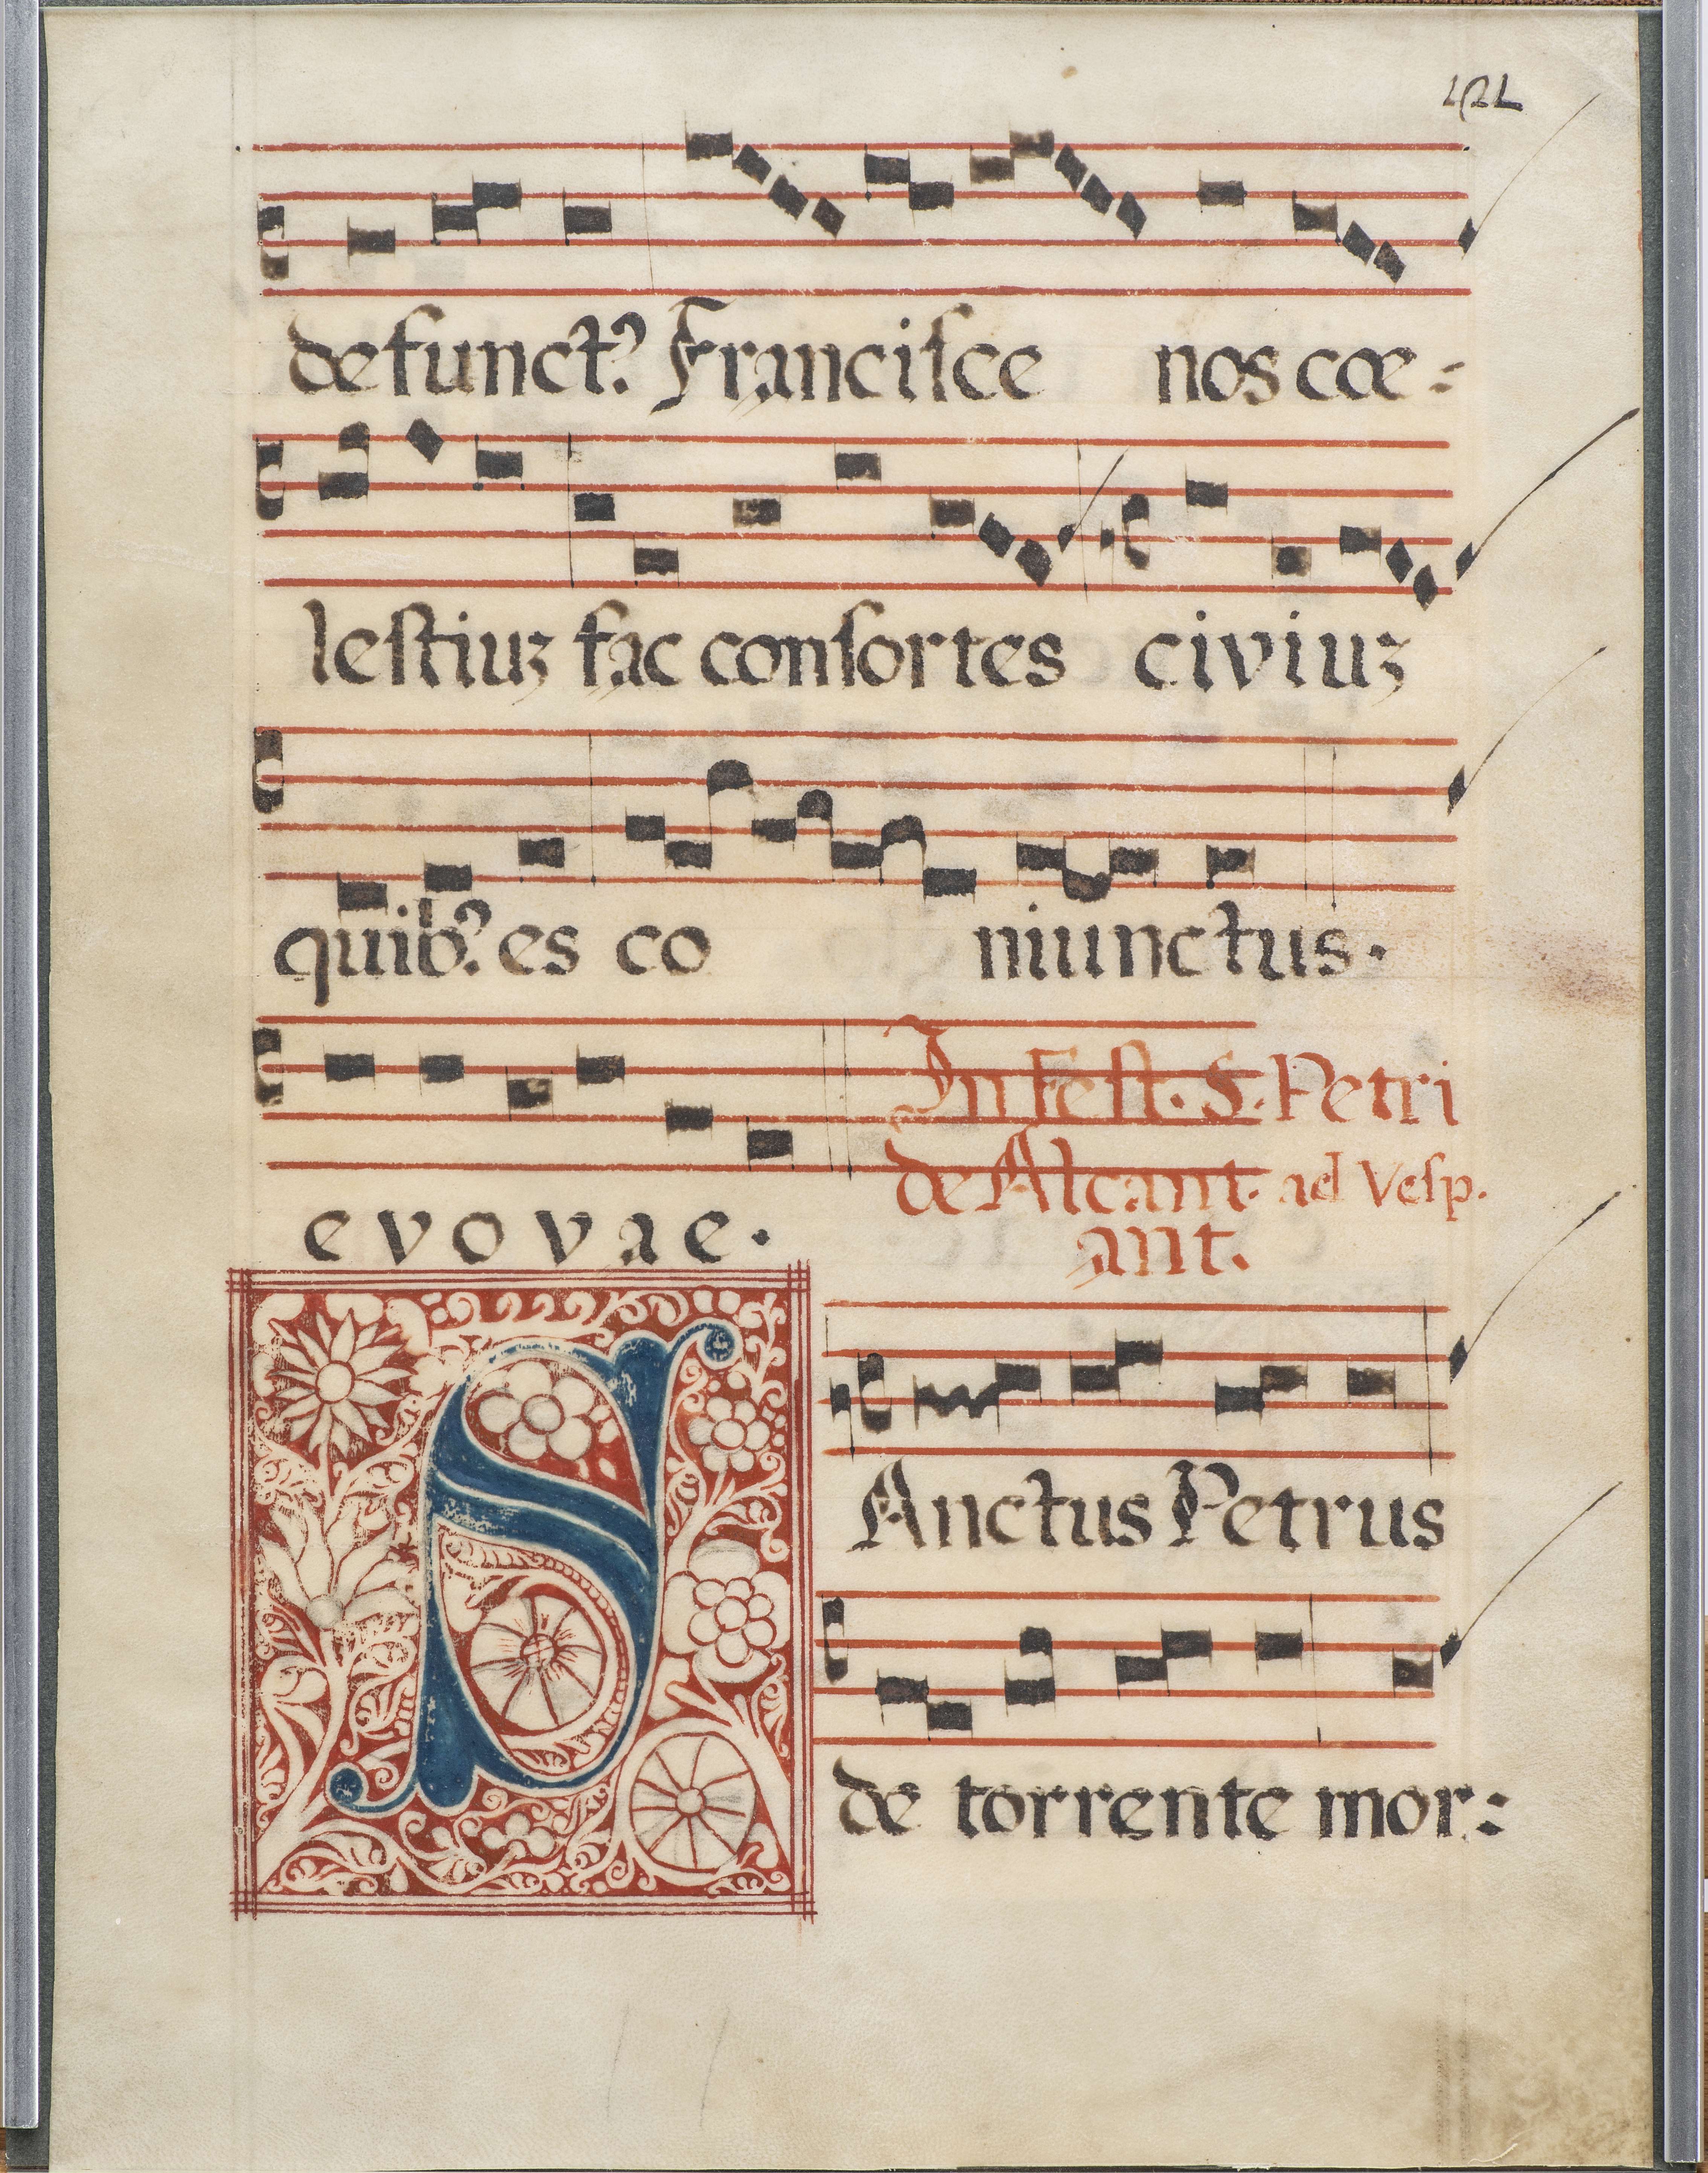 defunct⁹ Franciſce nos cœ=
leſtiuʒ fac conſortes civiuʒ
quib⁹ es co niunctus.
evovae.
In Feſt. S. Petri
de Alcant. ad Veſp.
ant.
S
Anctus Petrus
de torrente mor=